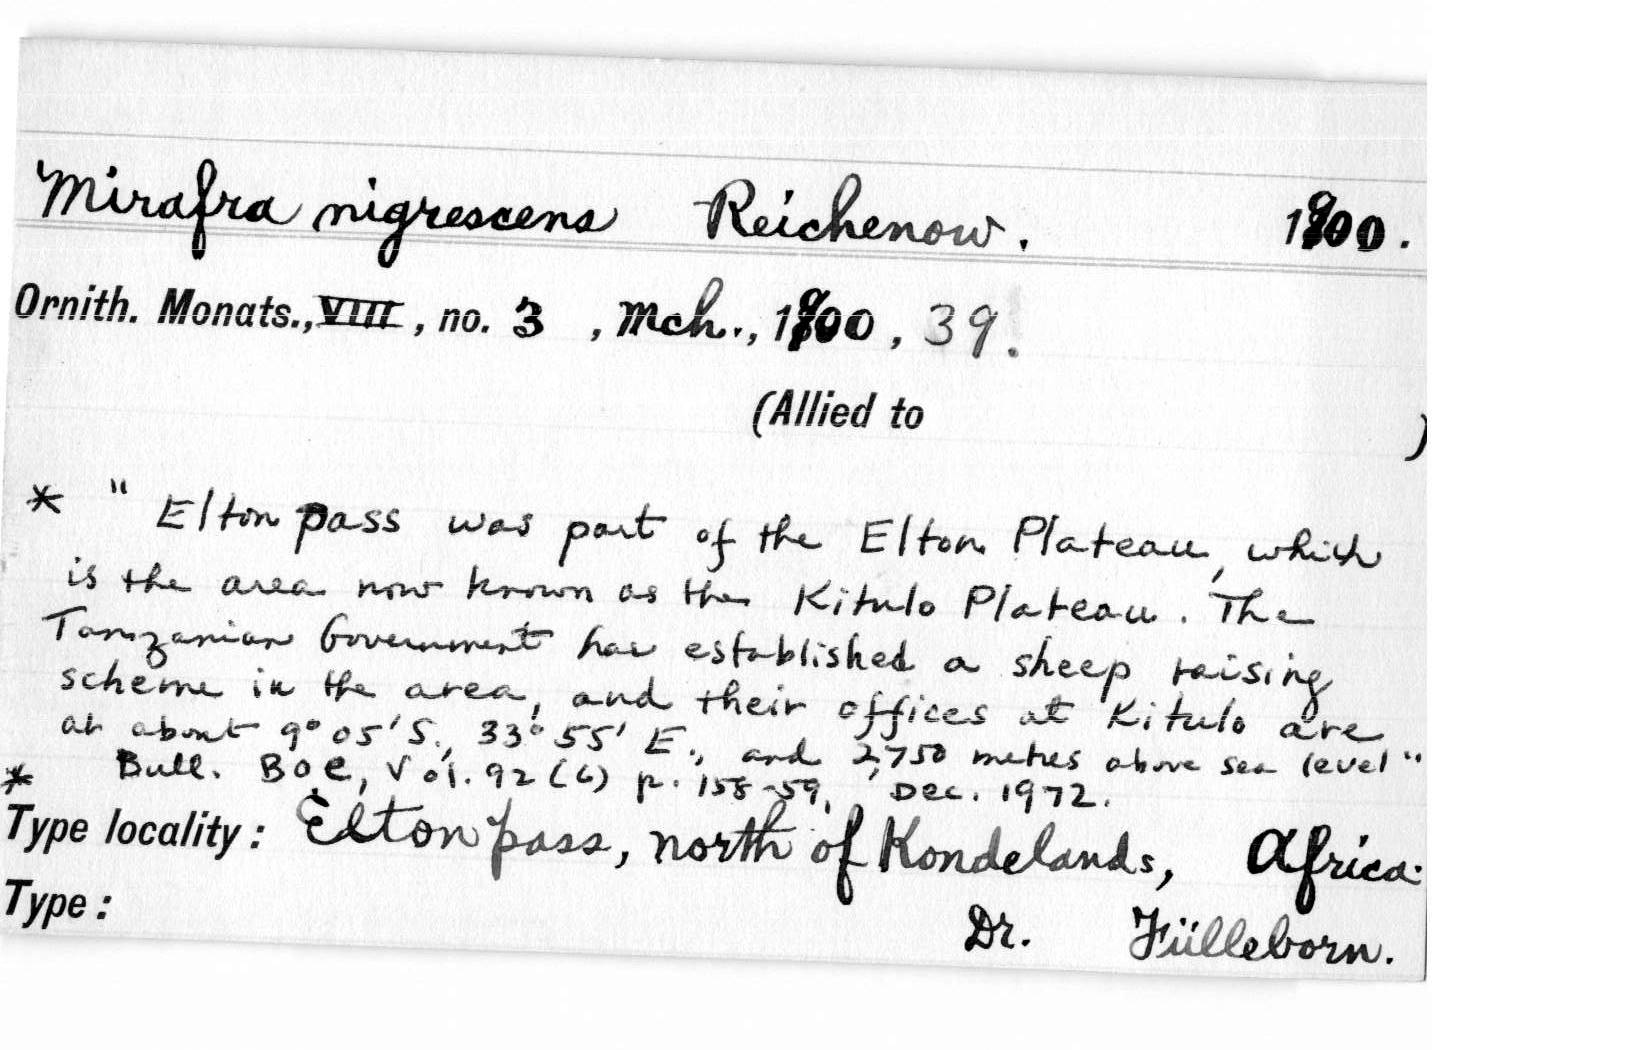 Mirafra nigrescens Reichenow. 1900.
Ornith. Monats., VIII, no. 3, Mch., 1900, 39.
(Allied to )
* " Elton pass was part of the Elton Plateau, which
is the area now known as the Kitulo Plateau. The
Tanzanian Government has established a sheep raising
scheme in the area, and their offices at Kitulo are
at about 9° 05' S., 33° 55' E., and 2,750 metres above sea level"
* Bull. BOC, Vol. 92 (6) p. 158-59, Dec. 1972.
Type locality: Elton pass, north of Kondelands, Africa.
Type: Dr. Fülleborn.